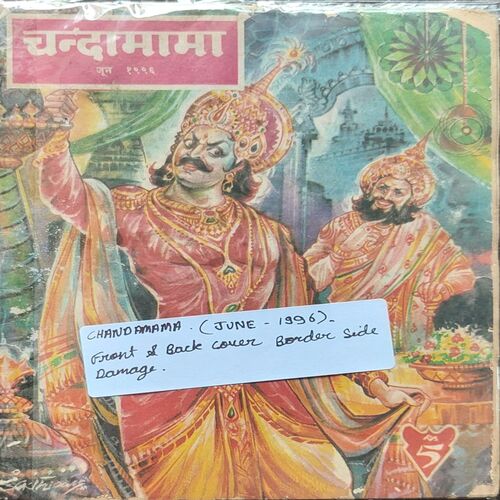 चन्दामामा
जून १९९६
CHANDAMAMA. (JUNE - 1996)-
Front & Back cover Border side
Damage.
5